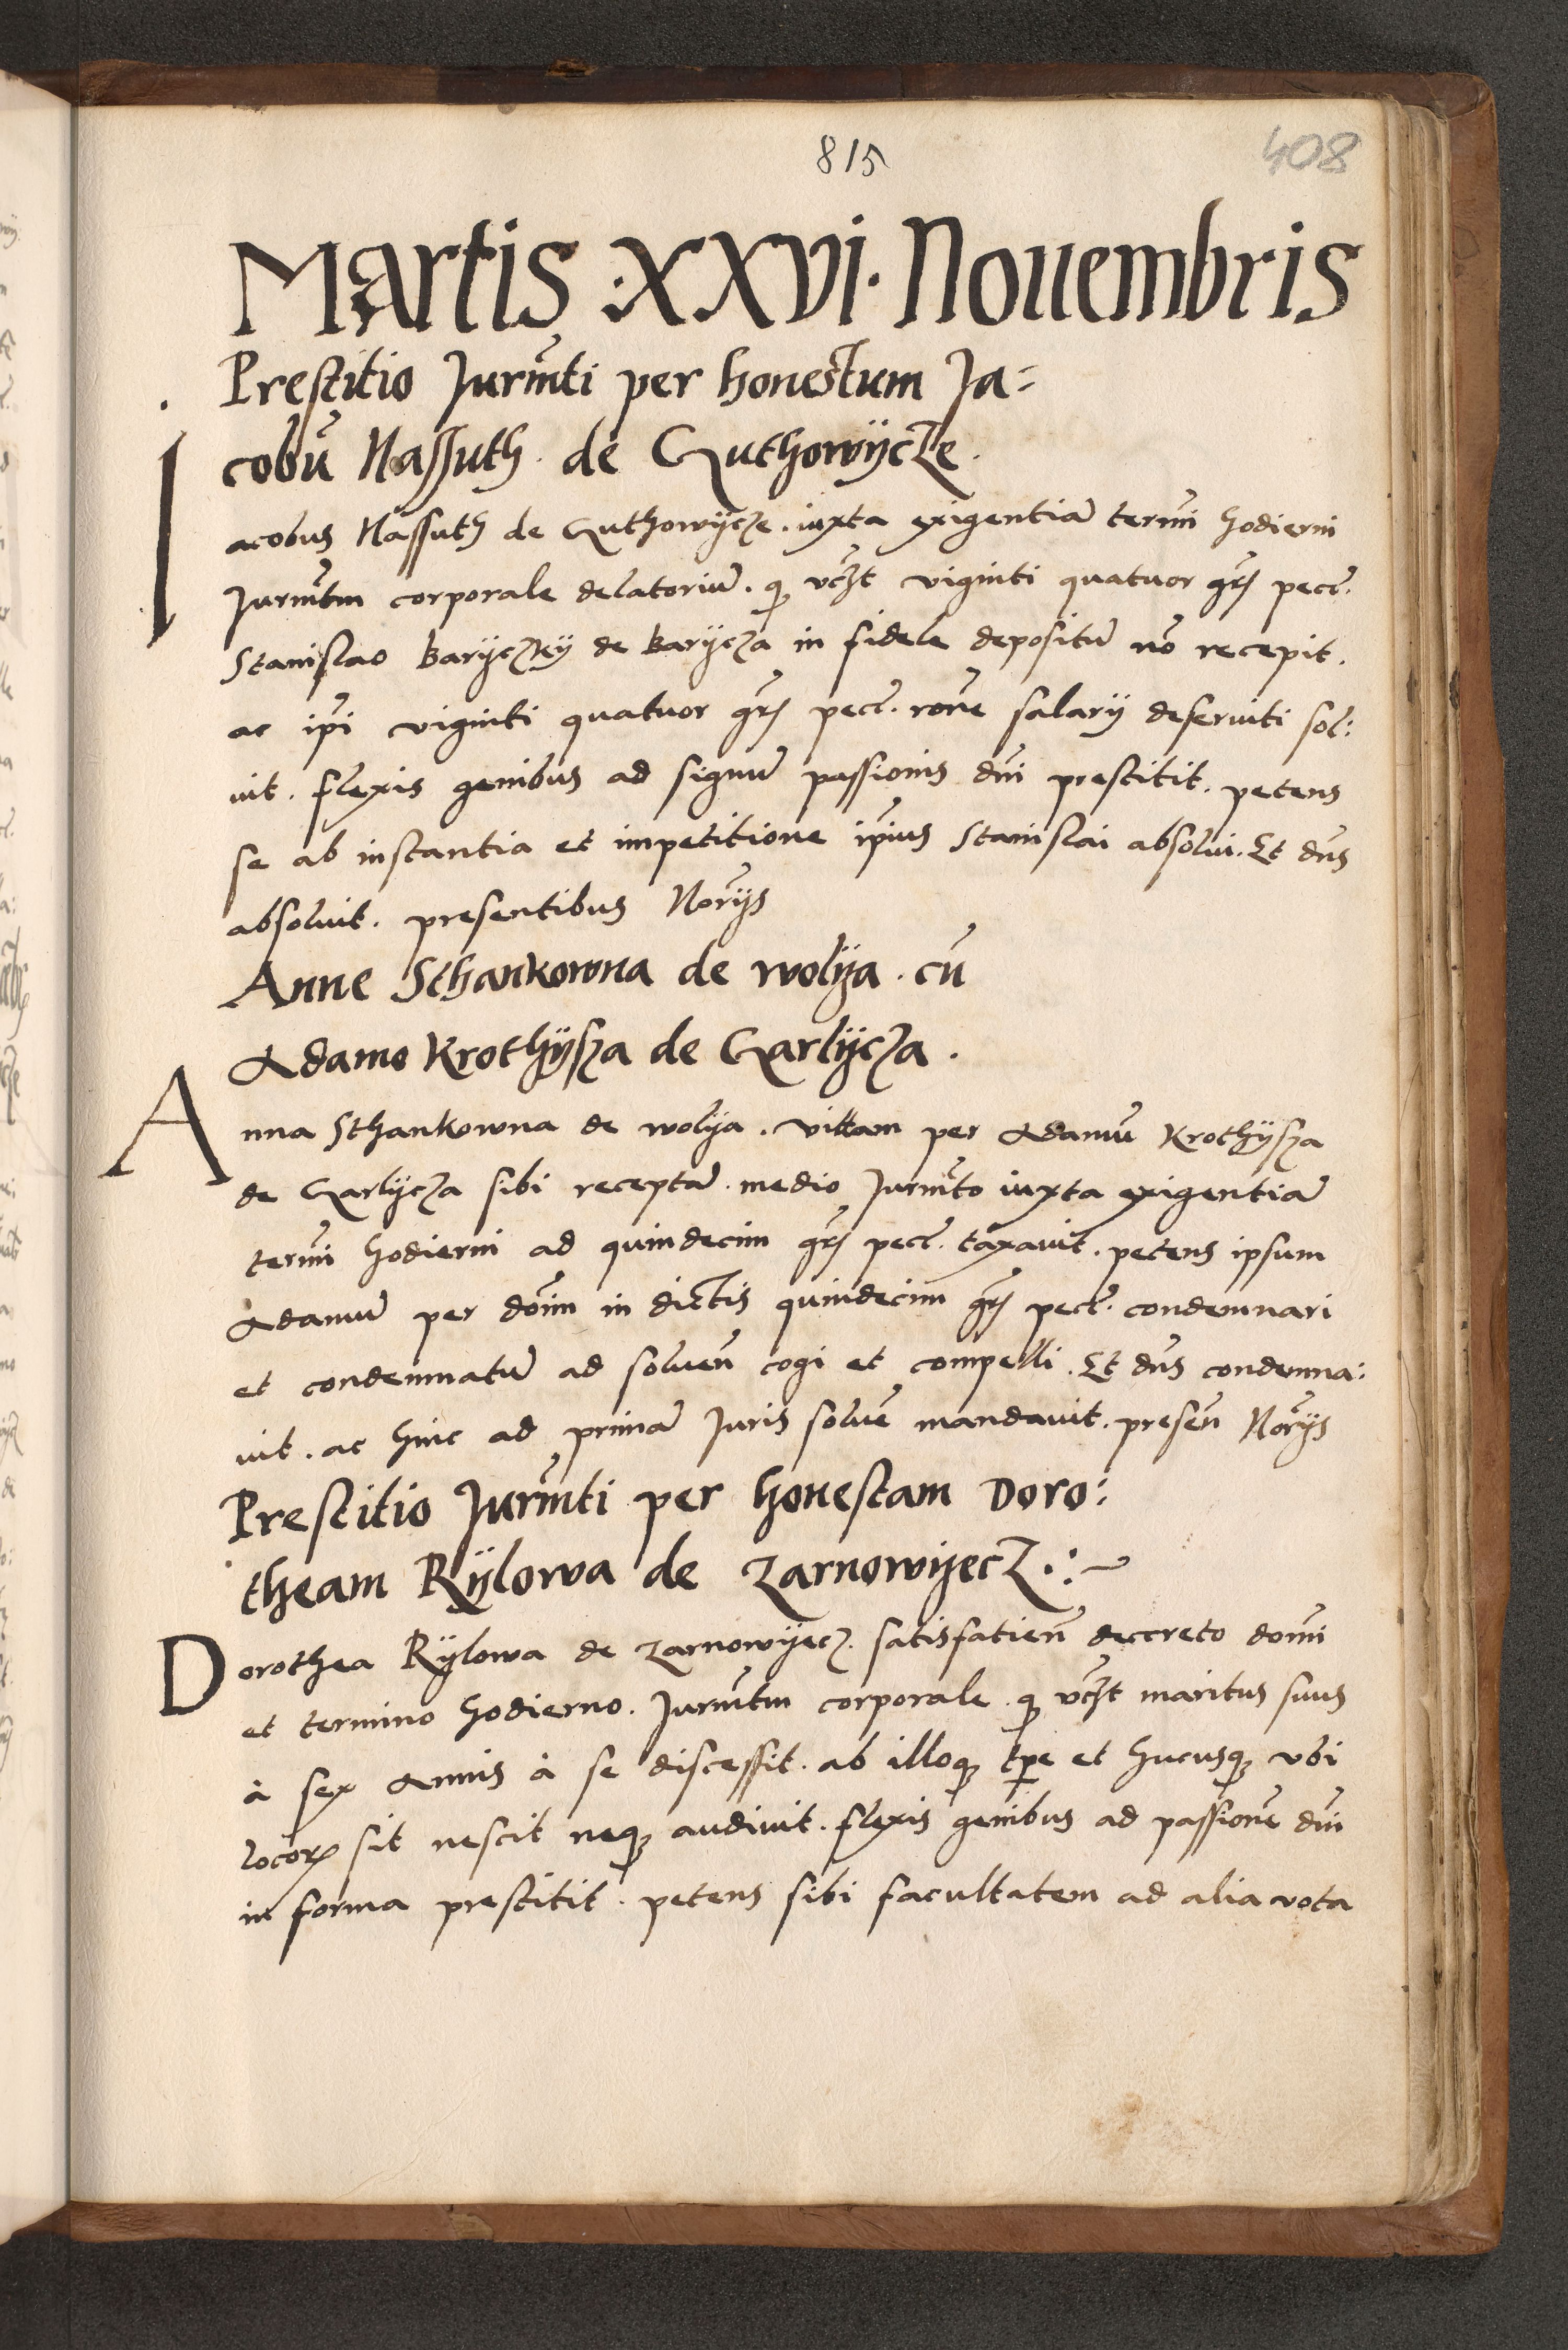 815
408
Martis ·XXVI· Nouembris
Prestitio Jurm̃ti per honestum Ja=
cobũ Nassuth de Guthowÿcze.
Jacobus Nassuth de Guthowÿcze. iuxta exigentiã termĩ hodierni
Jurm̃tm corporale delatoriũ. qꝫ viginti quatuor gr̃ pecc̃.
Stanislao Barÿczkÿ de Barÿcza in fidele depositũ nõ recepit.
ac ip̃i viginti quatuor gr̃ pecc̃. rõne salarÿ deseruiti sol:
uit. flexis genibus ad signũ passionis dñi prestitit. petens
se ab instantia et impetitione ip̃ius Stanislai absolui. Et dñs
absoluit. presentibus Norÿs
Anne Sthankowna de wolÿa. cũ
Adamo Krothÿsza de Garlÿcza.
Anna Sthankowna de wolÿa. per Adamũ Krothÿsza
de Garlÿcza sibi receptã medio Jurm̃to iuxta exigentiã
termĩ hodierni ad quindecim gr̃ pecc̃. taxauit. petens ipsum
Adamũ per dõim in dictis quindecim gr̃ pecc̃. condemnari
et condemnatũ ad soluen̄ cogi et compelli. Et dñs condemna:
uit. ac hinc ad primã Juris soluẽ mandauit. presen̄ Norÿs
Prestitio Jurm̃ti per honestam Doro:
theam Rÿlowa de Zarnowÿecz.:~
Dorothea Rÿlowa de Zarnowÿecz. satisfatien̄ decreto domĩ
et termino hodierno. Jurm̃tm corporale qꝫ maritus suus
à sex Annis à se discessit. ab illoqꝫ tp̃e et hucusqꝫ vbi
locorꝫ sit nescit neqꝫ audiuit. flexis genibus ad passionẽ dñi
in forma prestitit. petens sibi facultatem ad alia vota